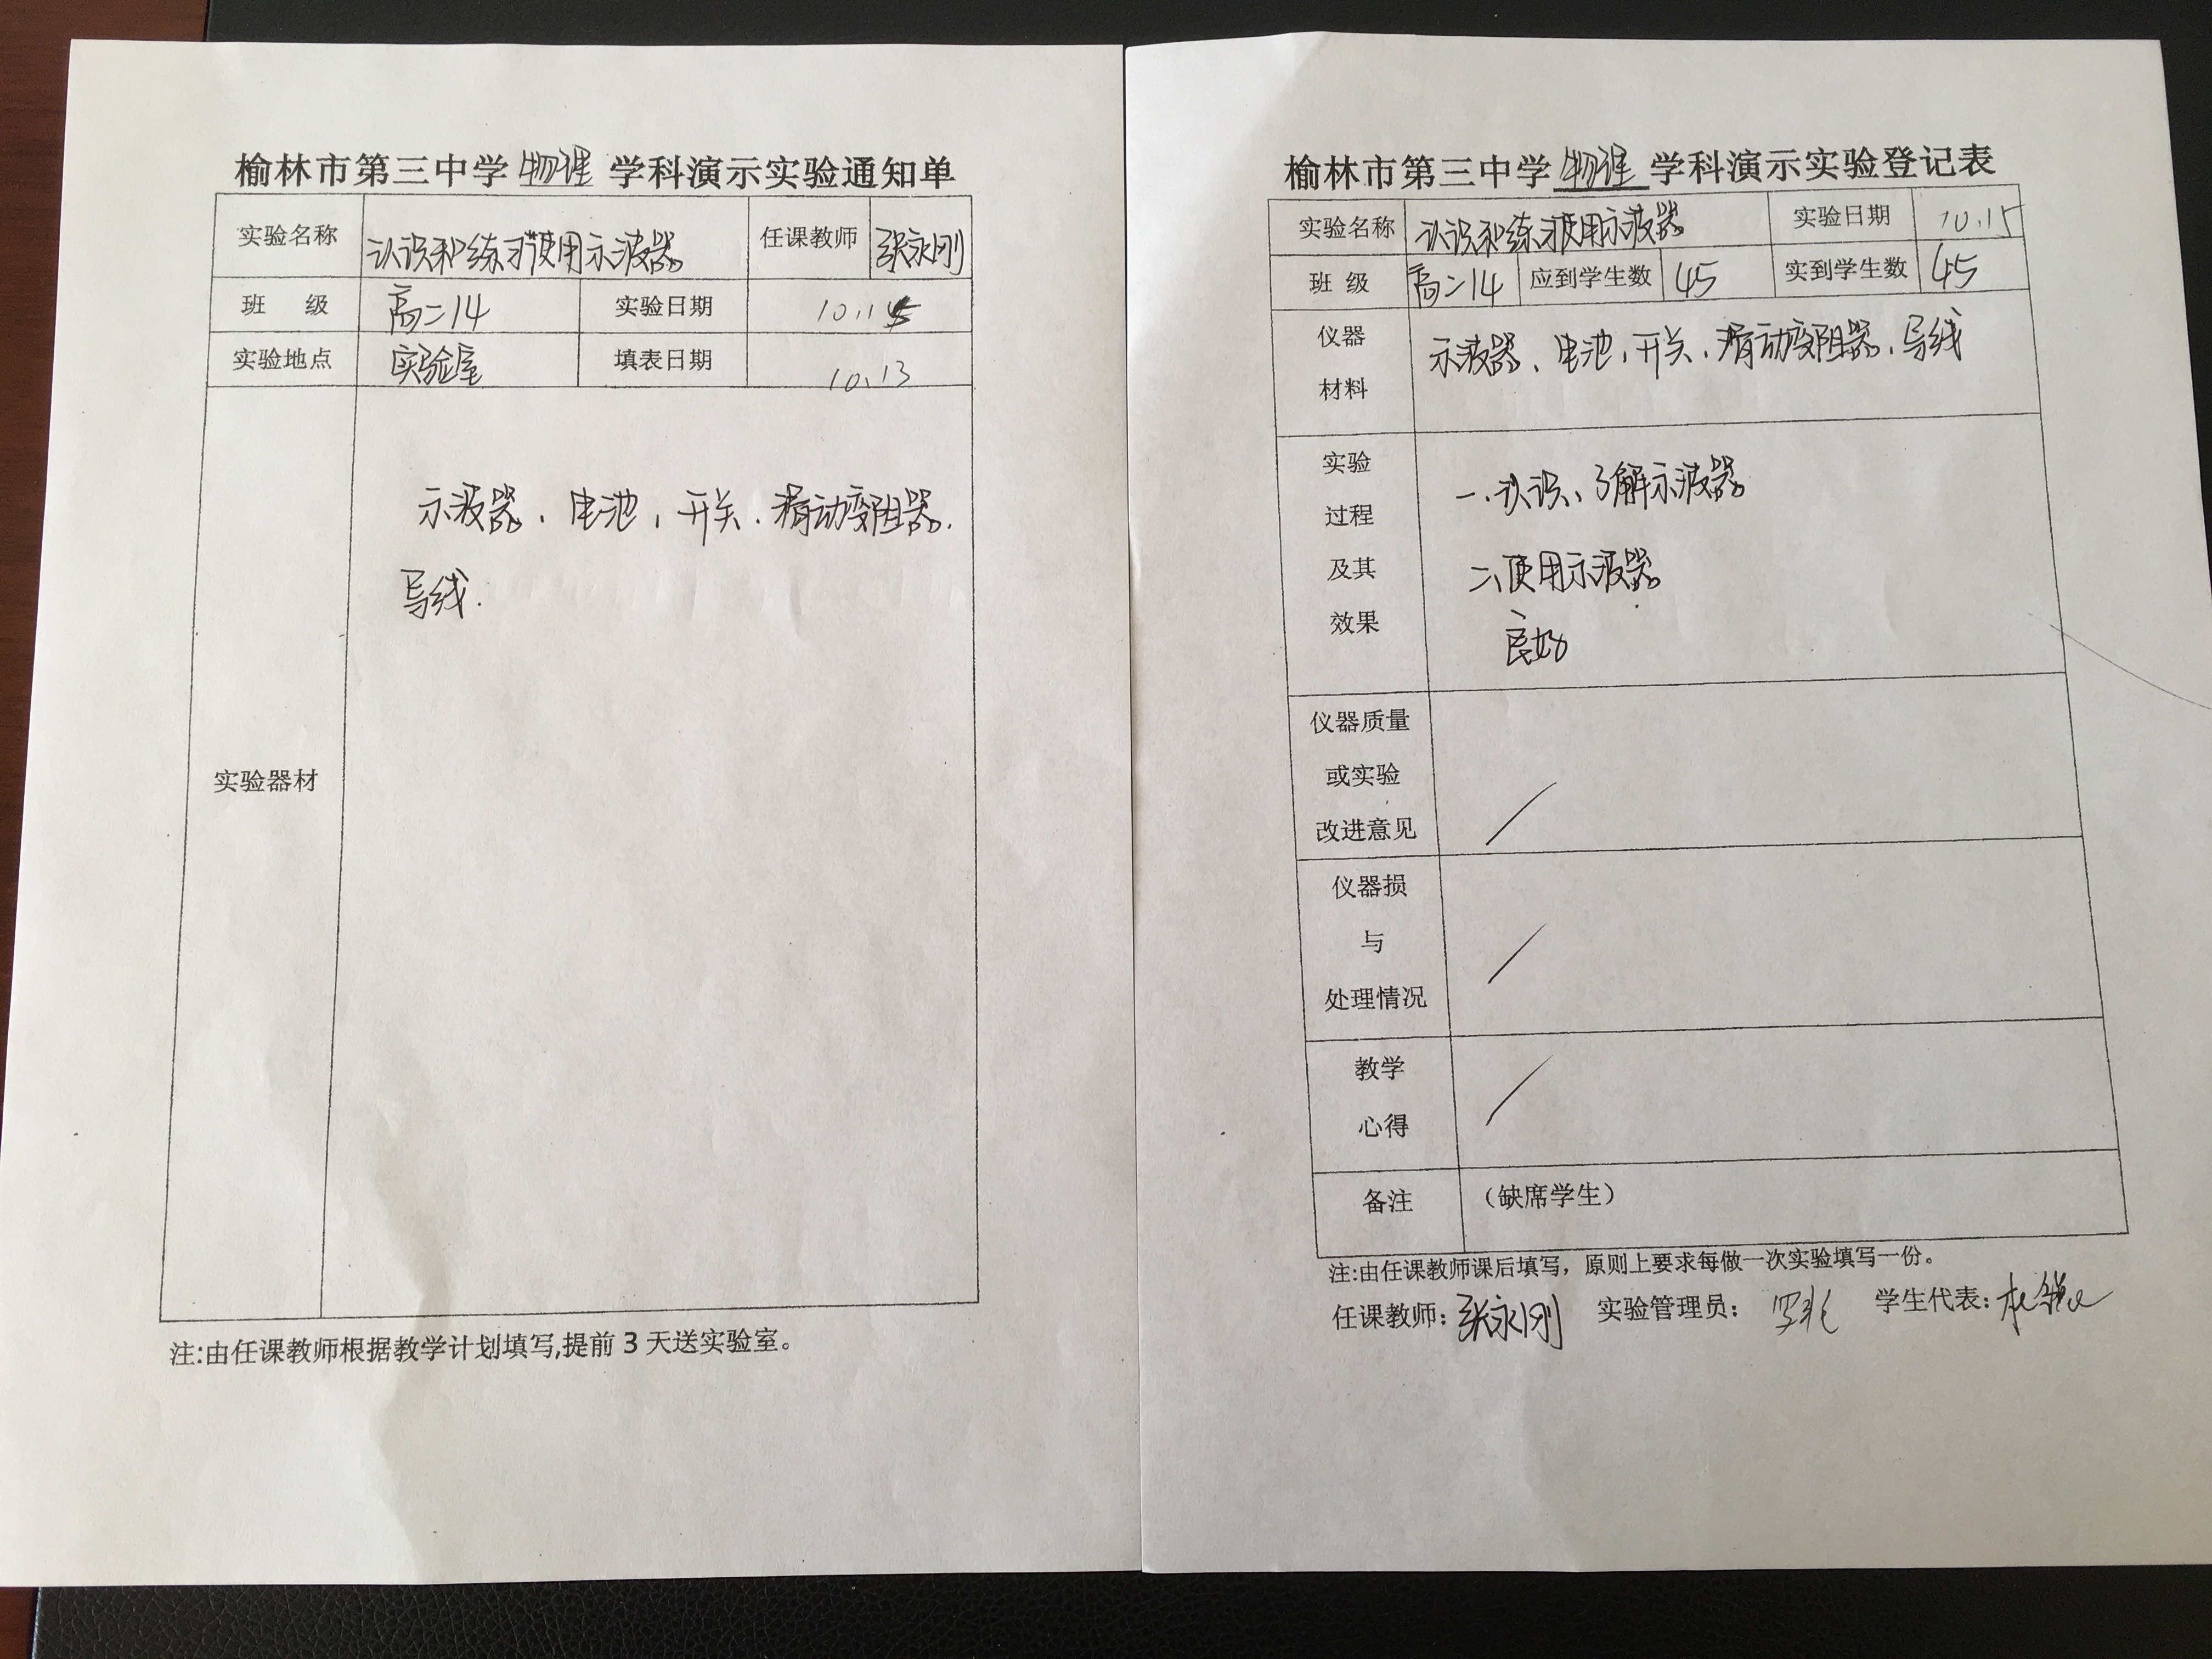 榆林市第三中学 物理 学科演示实验通知单
实验名称 认识和练习使用示波器 任课教师 张永刚
班 级 高二14 实验日期 10.15
实验地点 实验室 填表日期 10.13
实验器材
示波器、电池，开关、滑动变阻器、
导线.
注:由任课教师根据教学计划填写,提前3天送实验室。
榆林市第三中学 物理 学科演示实验登记表
实验名称 认识和练习使用示波器 实验日期 10.15
班 级 高二14 应到学生数 45 实到学生数 45
仪器
材料
示波器、电池，开关、滑动变阻器、导线
实验
过程
及其
效果
一、认识、了解示波器
二、使用示波器
良好
仪器质量
或实验
改进意见
仪器损
与
处理情况
教学
心得
备注 （缺席学生）
注:由任课教师课后填写，原则上要求每做一次实验填写一份。
任课教师: 张永刚 实验管理员: 学生代表: